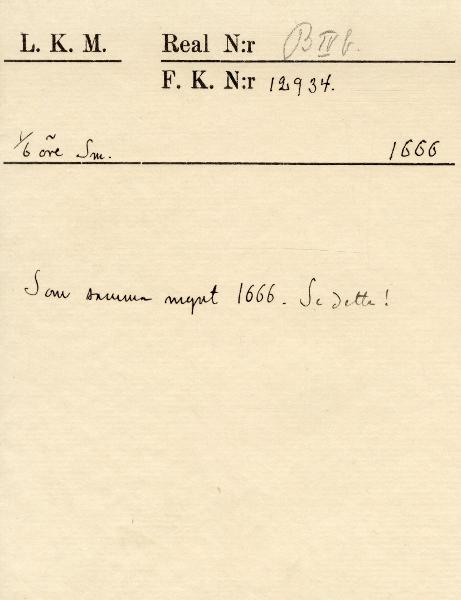 L. K. M. Real N:r B IV b.
F. K. N:r 12934.
1/6 öre Sm. 1666
Som samma mynt 1666. Se detta!